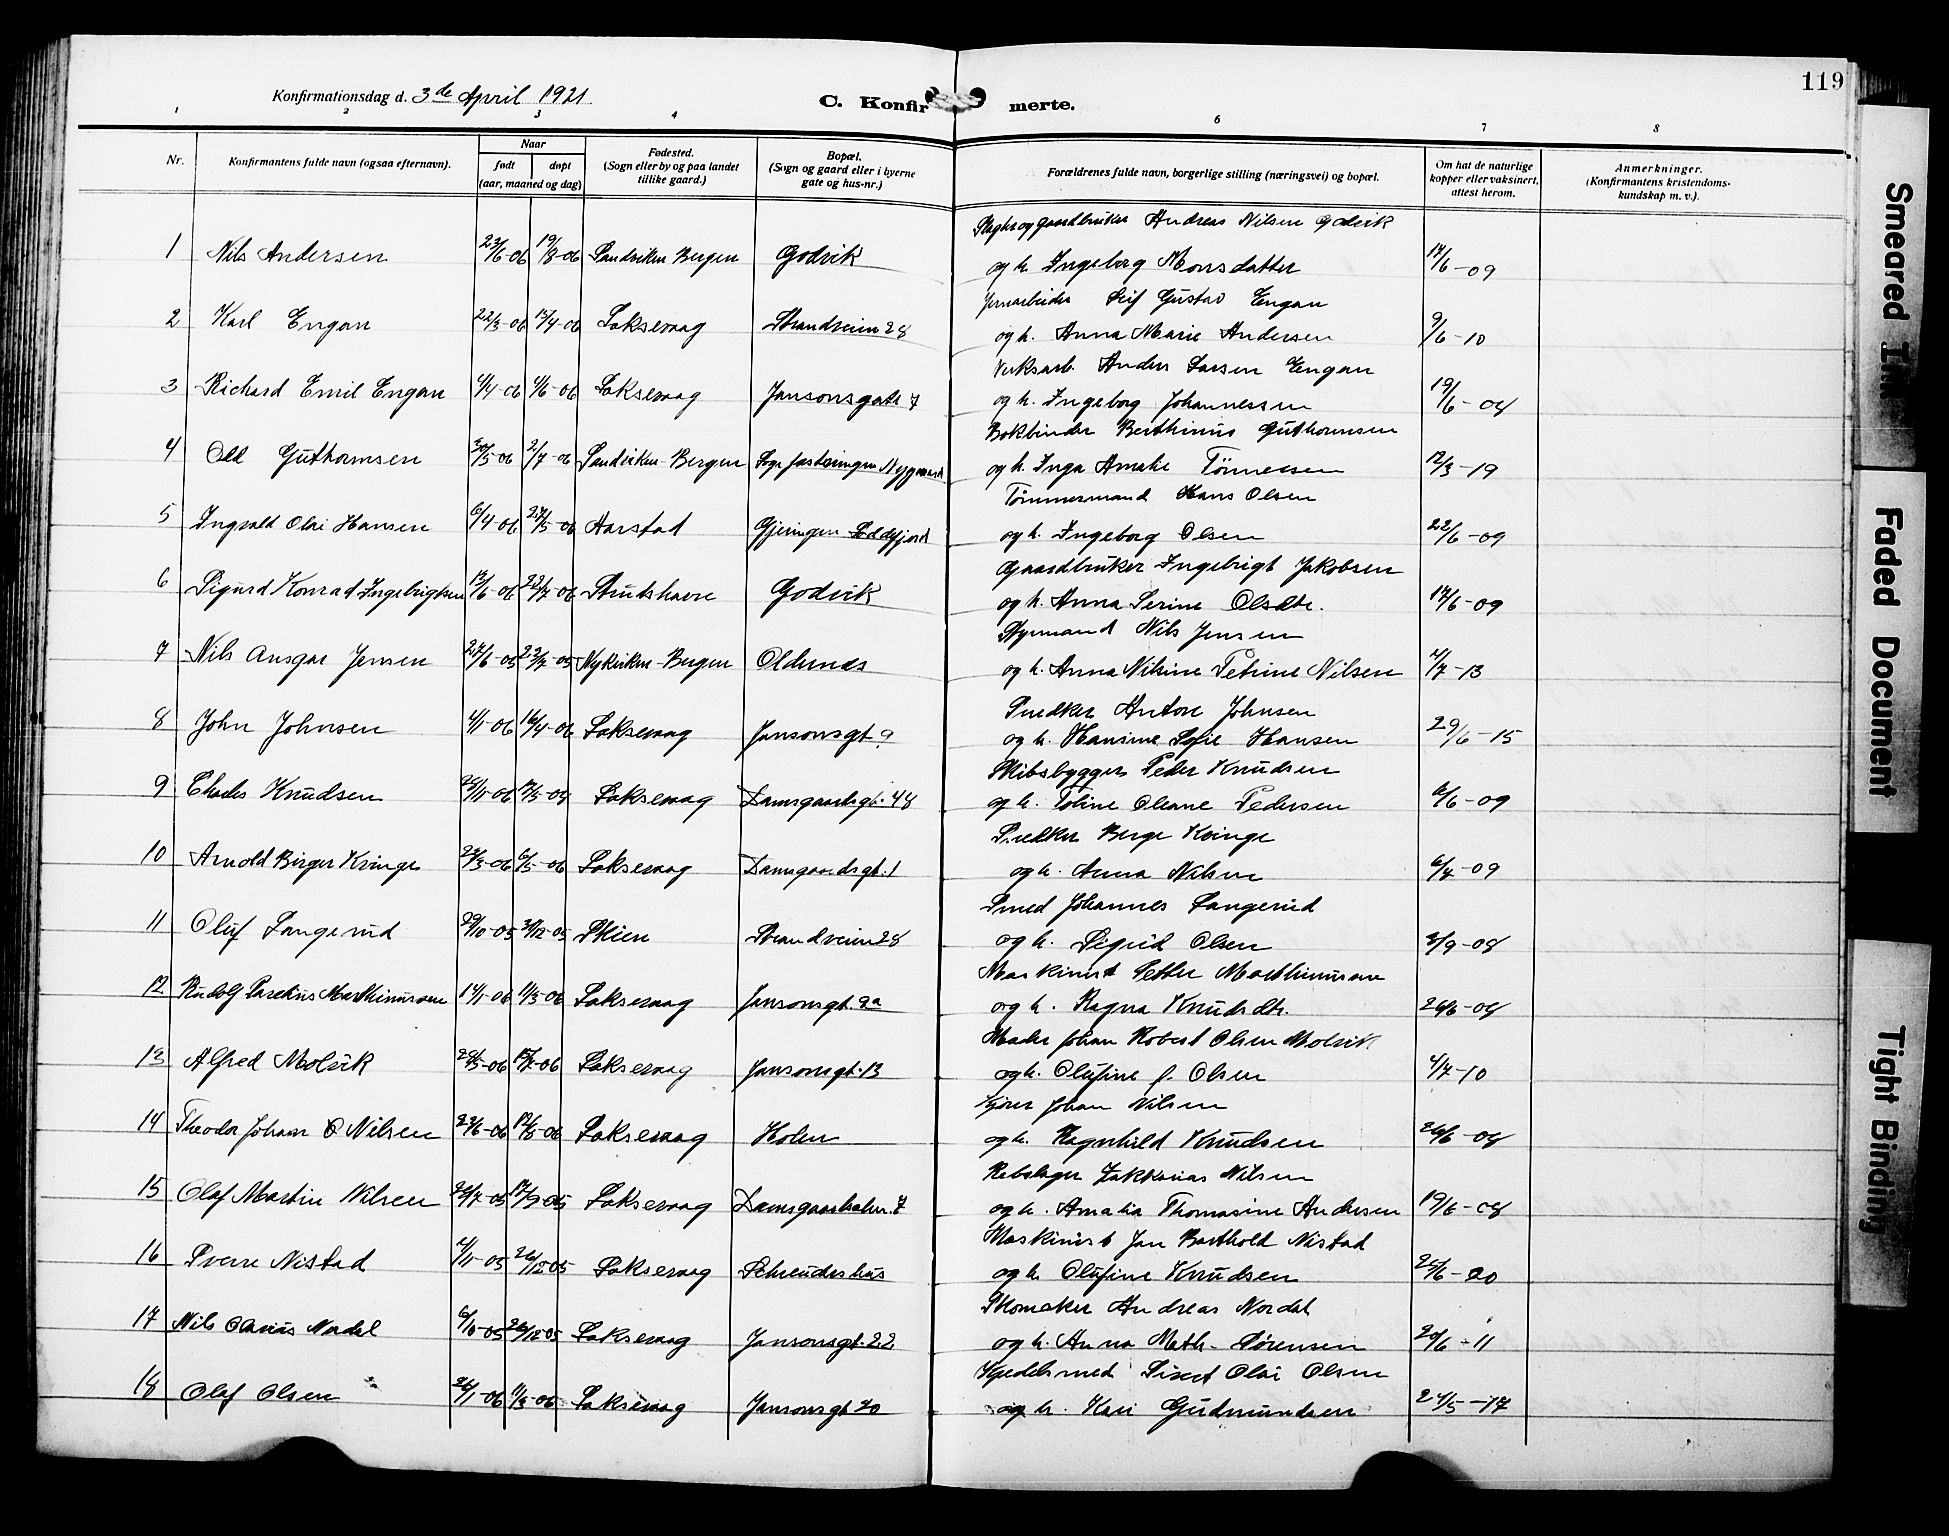 119
Konfirmationsdag d. 3de April 1921
C. Konfirmerte.
1 2 3 4 6 7 8
Nr. Konfirmantens fulde navn (ogsaa efternavn). Naar født døpt (aar, maaned og dag) Fødested. (Sogn eller by og paa landet tillike gaard.) Bopæl. (Sogn og gaard eller i byerne gate og hus-nr.) Forældrenes fulde navn, borgerlige stilling (næringsvei) og bopæl. Om hat de naturlige kopper eller vaksinert, attest herom. Anmerkninger. (Konfirmantens kristendoms-kundskap m. v.).
gaardbruker Andreas Nilsen Godvik
1 Nils Andersen 23/6-06 19/8-06 Sandviken Bergen Godvik og h. Ingeborg Monsdatter 17/6-09
Jernarbeider Leif Gustav Engan
2 Karl Engan 22/3-06 17/4-06 Laksevaag Strandveien 28 og h. Anna Marie Andersen 9/6-10
Verksarb. Anders Larsen Engan
3 Richard Emil Engan 4/4-06 4/6-06 Laksevaag Jansonsgate 7 og h. Ingeborg Johannessen 19/6-08
Bokbinder Berthinius Guthormsen
4 Odd Guthormsen 30/5-06 2/7-06 Sandviken-Bergen Nygaard og h. Inga Amalie Tönnessen 12/3-19
Tömmermand Hans Olsen
5 Ingvald Olai Hansen 6/4-06 27/5-06 Aarstad Gjeringen Loddefjord og h. Ingeborg Olsen 22/6-09
Gaardbruker Ingebrigt Jakobsen
6 Sigurd Konrad Ingebrigtsen 13/6-06 22/7-06 Strutshavn Godvik og h. Anna Serine Olsdtr. 17/6-09
Styrmand Nils Jensen
7 Nils Ansgar Jensen 27/6-05 23/7-05 Nykirken-Bergen Oldernes og h. Anna Nilsine Petrine Nilsen 4/7-13
Snedker Anton Johnsen
8 John Johnsen 4/1-06 16/4-06 Laksevaag Jansonsgt. 9 og h. Hansine Sofie Hansen 29/6-15
Skibsbygger Peder Knudsen
9 Charles Knudsen Laksevaag Damsgaardsgt. 48 og h. Toline Oleane Pedersen 6/6-09
Snedker Berge Kvinge
10 Arnold Birger Kvinge 24/3-06 6/5-06 Laksevaag Damsgaardsgt. 1 og h. Anna Nilsen 6/7-09
Smed Johannes Langerud
11 Oluf Langerud 29/10-05 31/12-05 Skien Strandveien 28 og h. Sigrid Olsen 3/9-08
Maskinist Petter Marthinussen
12 Rudolf Marthinussen 14/1-06 11/3-06 Laksevaag Jansonsgt. 9a og h. Ragna Knudsdtr. 26/6-08
Maler Johan Robert Olsen Molvik
13 Alfred Molvik 28/5-06 Laksevaag Jansonsgt. 13 og h. Olufine J. Olsen 4/7-10
Fyrer Johan Nilsen
14 Theodor Johan O Nilsen 22/6-06 19/8-06 Laksevaag Holen og h. Ragnhild Knudsen 26/6-08
Rebslager Zakkarias Nilsen
15 Olaf Martin Nilsen 23/7-05 17/9-05 Laksevaag Damsgaardsalm. 7 og h. Amalia Thomasine Andersen 19/6-08
Maskinist Jan Barthold Nistad
16 Sverre Nistad 4/11-05 26/12-05 Laksevaag Schreudershus og h. Olufine Knudsen 25/6-20
Skomaker Andreas Nordal
17 Nils Olavus Nordal 6/10-05 26/12-05 Laksevaag Jansonsgt. 22 og h. Anna Math. Sörensen 20/6-11
Sivert Olai Olsen
18 Olaf Olsen 24/1-06 11/3-06 Laksevaag Jansonsgt 20 og h. Kari Gudmundsen 24/5-17
Smeared Ink
Faded Document
Tight Binding